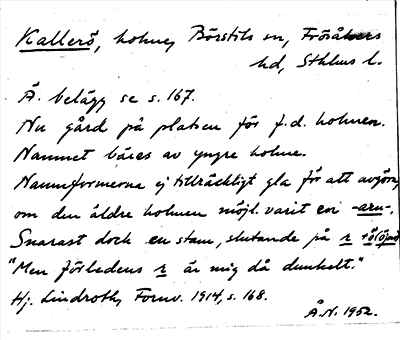 Kallerö, holme, Börstils sn, Frösåkers
hd, Sthlms l.
Ä. belägg se s. 167.
Nu gård på platsen för f.d. holmen.
Namnet bäres av yngre holme.
Namnformerna ej tillräckligt gla för att avgöra,
om den äldre holmen möjl. varit en -arn-.
Snarast dock en stam, slutande på r + ö
"Men förledens r är mig då dunkelt."
Hj. Lindroth, Fornv. 1914, s. 168.
Å.N. 1952.